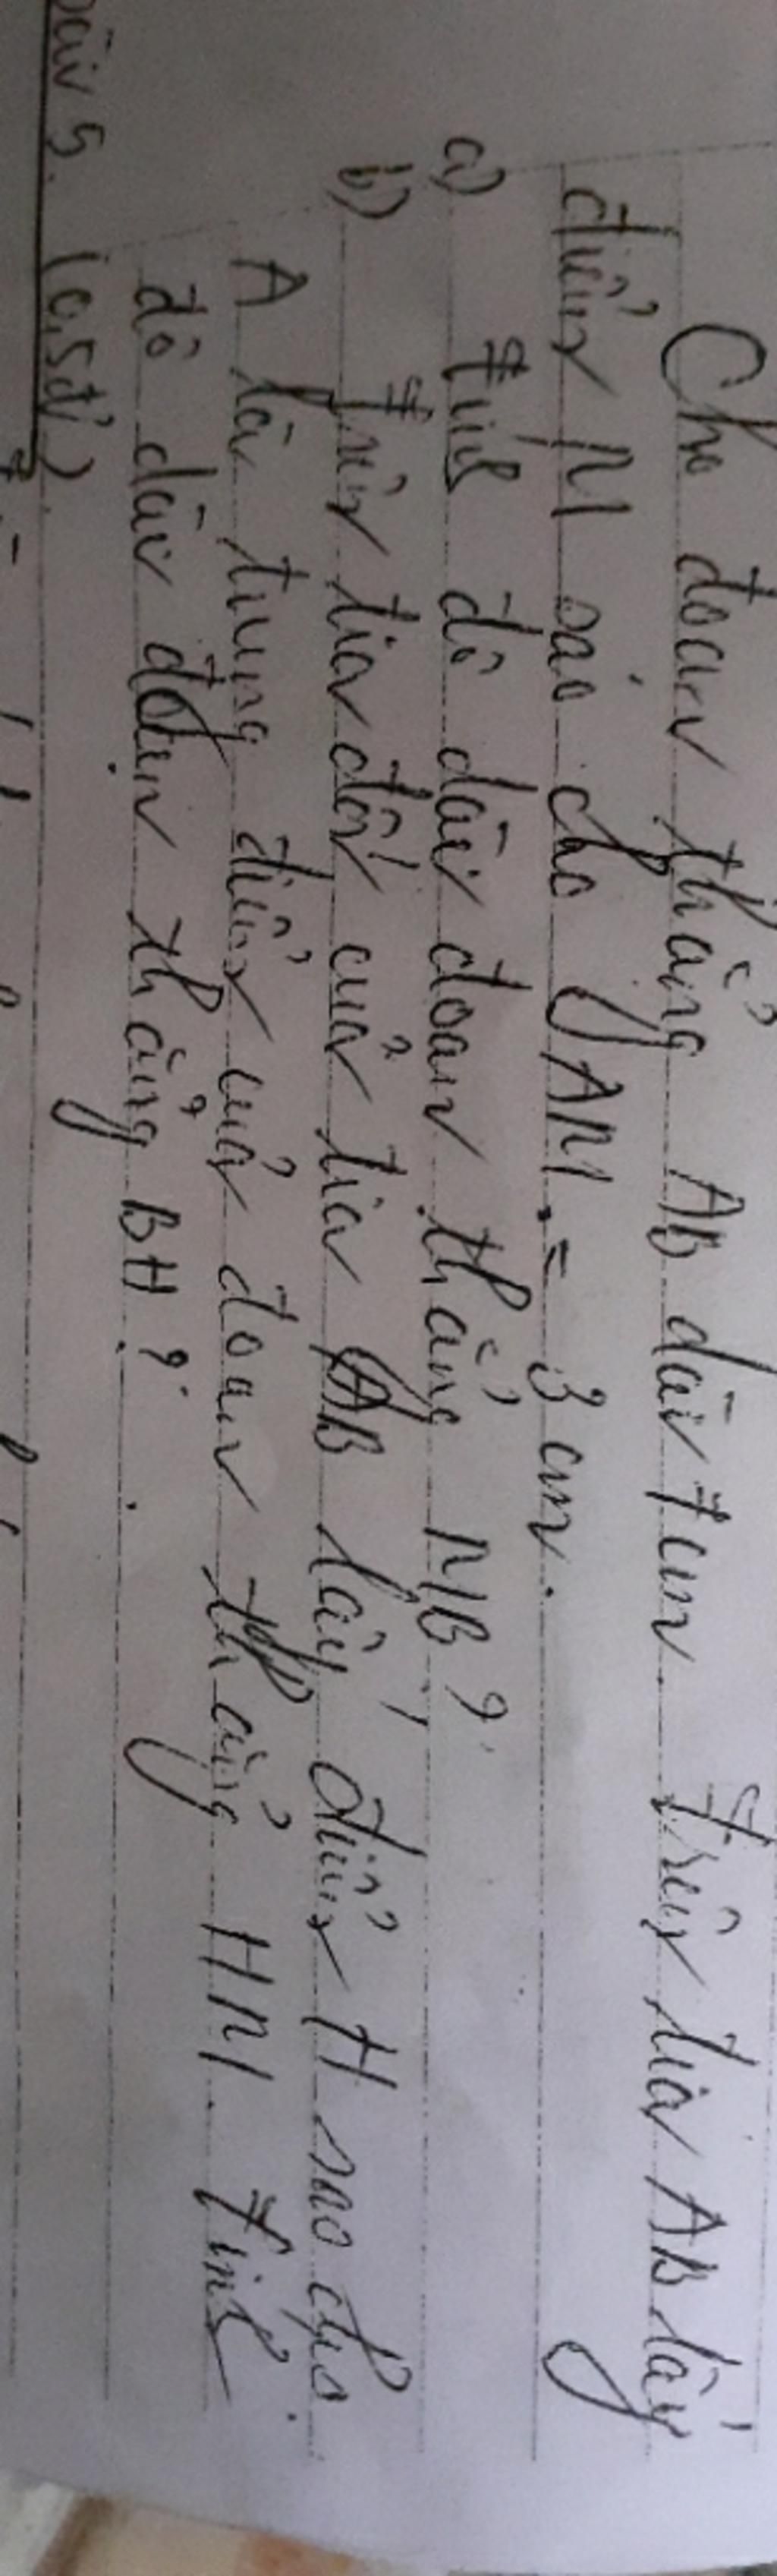 Cho đoạn thẳng AB dài 7cm. Trên tia AB lấy
điểm M sao cho AM = 3 cm.
a) Tính độ dài đoạn thẳng MB?
b) Trên tia đối của tia AB lấy điểm H sao cho
A là trung điểm của đoạn thẳng HM. Tính
độ dài đoạn thẳng BH?
bài 5. (0,5đ)